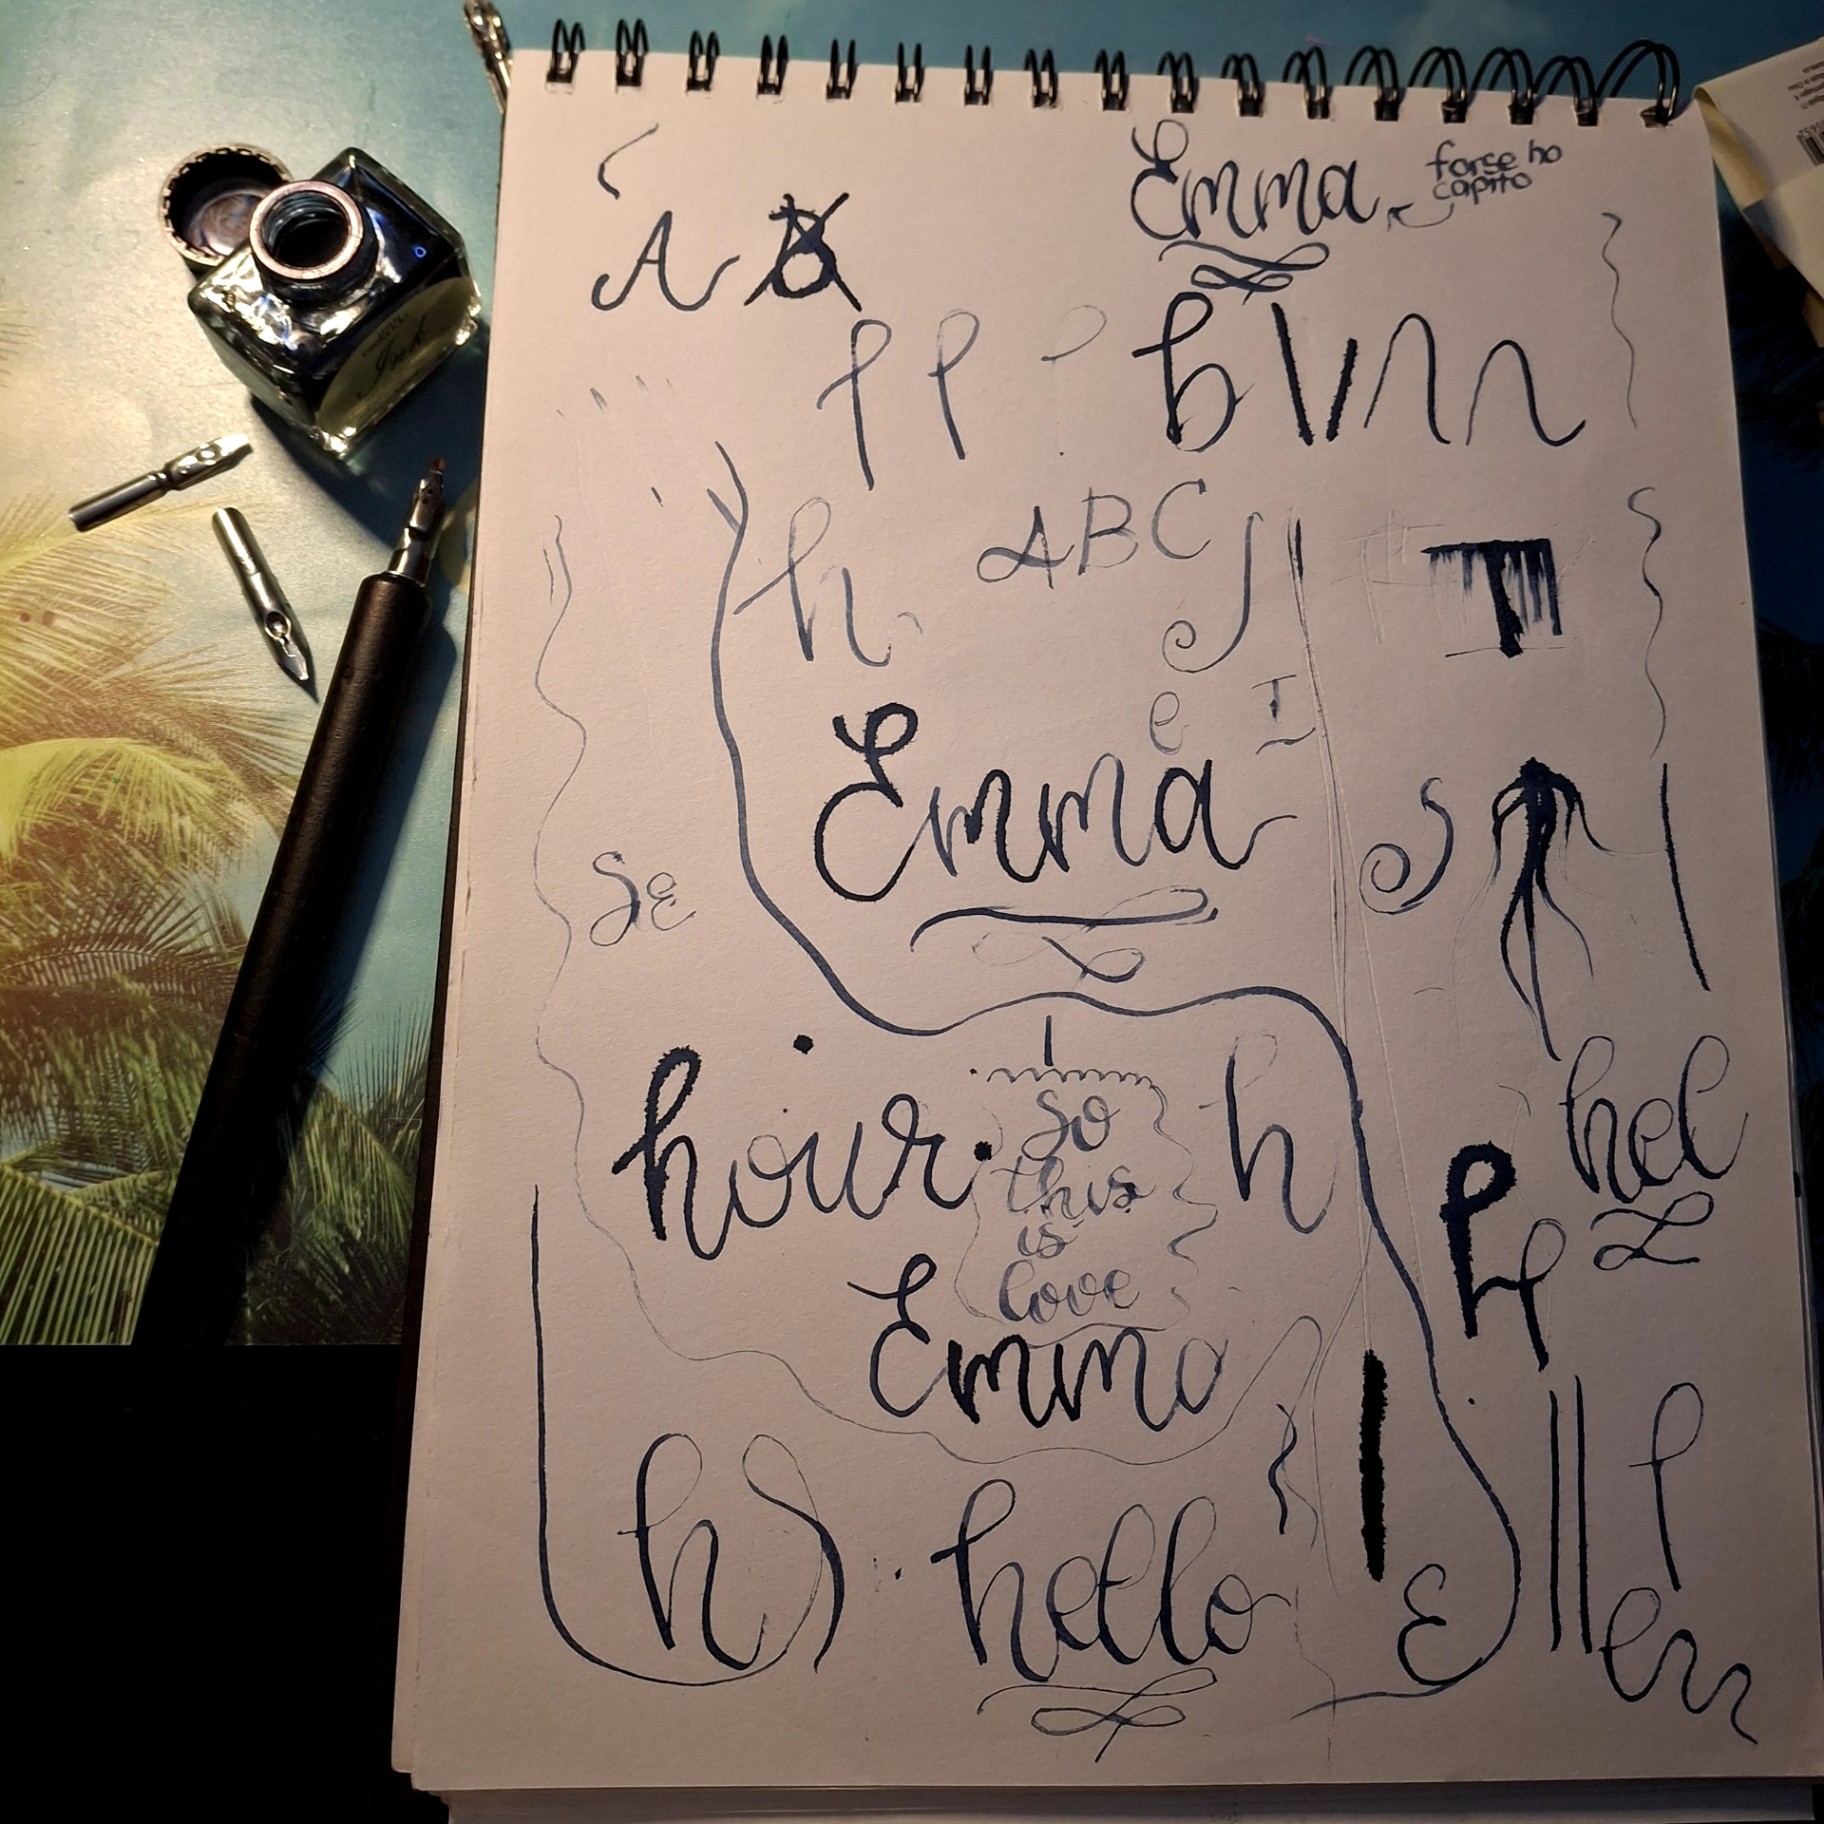 Emma
forse ho
capito
A
b
h
ABC
T
e
I
Emma
Se
hour.
So
this
is
love
h
hel
Emma
h
hello
Ink